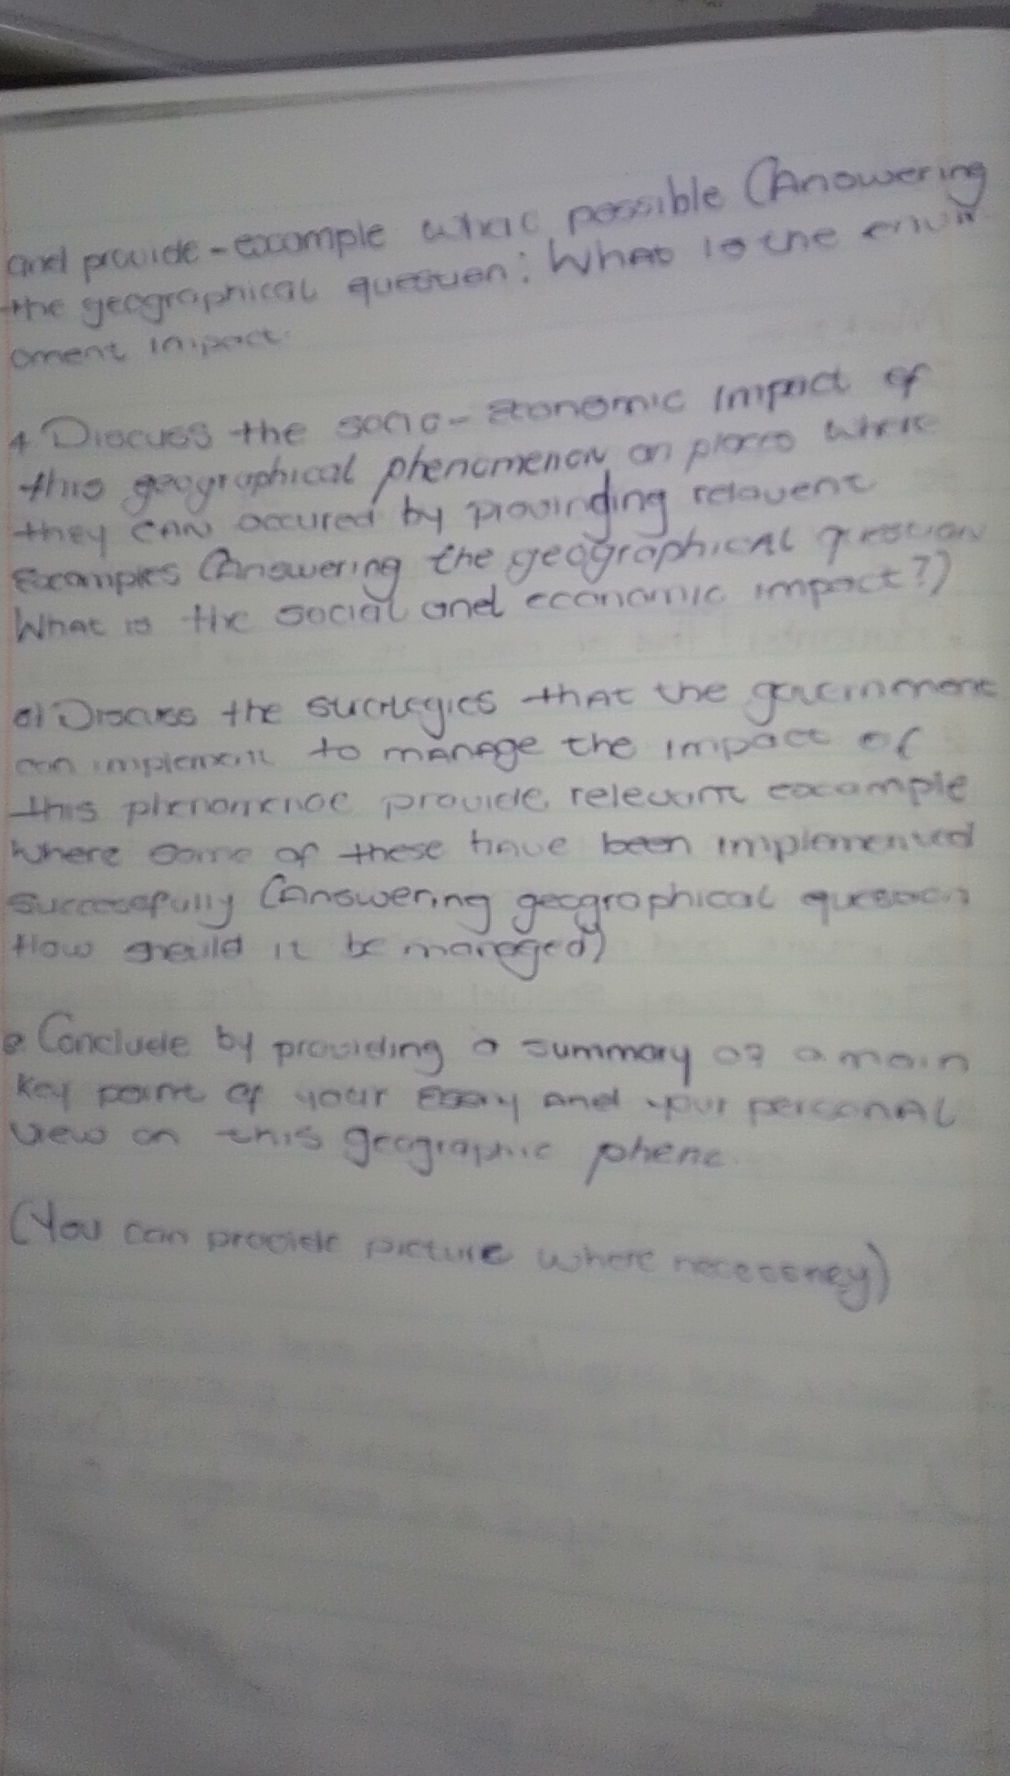 and provide - example where possible (Answering
the geographical question: What is the envir
onment impact.
4. Discuss the socio-Economic impact of
this geographical phenomenon on places where
they can occured by provinding relavent
Examples (Answering the geographical question
What is the social and economic impact?)
Discuss the strategies that the government
can implement to manage the impact of
this phenomenoe provide relevant example
where some of these have been implemented
successfully (Answering geographical question
How should it be managed)
Conclude by providing a summary of a main
key point of your Essay and your personal
view on this geographic pheno
(You can provide picture where necessney)